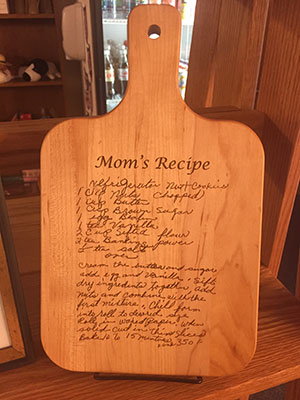 Mom's Recipe
Refrigerator Nut Cookies
1 Cup Nuts (chopped)
1 Cup Butter
1 Cup Brown Sugar
1 egg Beaten
Vanilla
2 Cup Sifted flour
2 tea Banking power
tea salt
over
Cream the butter and sugar
add egg and Vanilla. Sift
dry ingredients together, add
Nuts and combine with the
first mixture. Chill form
into roll to desired size
Roll in waxed paper. When
solid cut in thin slices
Bake 10 to 15 minutes
350